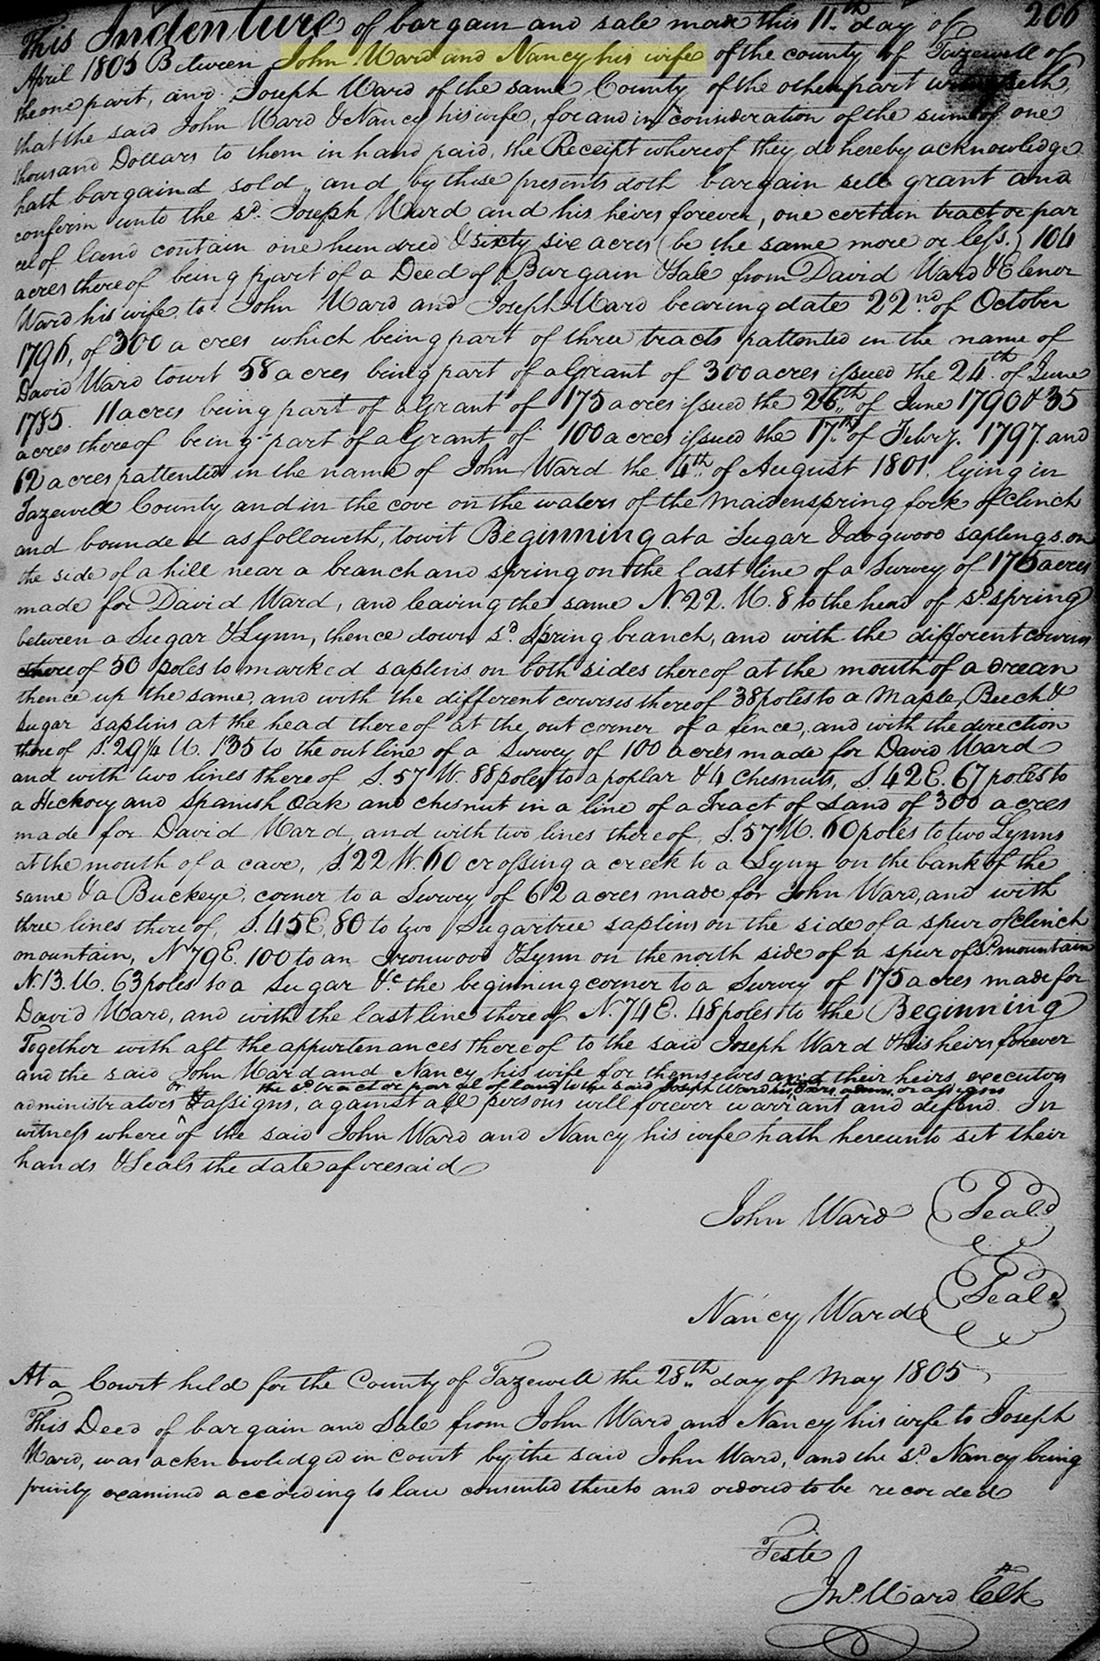 206
This Indenture of bargain and sale made this 11th day of
April 1805 Between John Ward and Nancy his wife of the county of Tazewell of
the one part, and Joseph Ward of the same County of the other part witnesseth,
that the said John Ward & Nancy his wife, for and in consideration of the sum of one
thousand Dollars to them in hand paid, the Receipt whereof they do hereby acknowledge
hath bargaind sold, and by these presents doth bargain sell grant and
confirm unto the sd. Joseph Ward and his heirs forever, one certain tract or par
cel of land contain one hundred & sixty six acres (be the same more or less.) 104
acres thereof being part of a Deed of Bargain & Sale from David Ward & Elenor
Ward his wife to John Ward and Joseph Ward bearing date 22nd of October
1796, of 300 acres which being part of three tracts pattented in the name of
David Ward towit 58 acres being part of a Grant of 300 acres issued the 24th of June
1785. 11 acres being part of a Grant of 175 acres issued the 26th of June 1790 & 35
acres thereof being part of a Grant of 100 acres issued the 17th of Febry. 1797. and
62 acres pattented in the name of John Ward the 4th of August 1801. lying in
Tazewell County and in the cove on the waters of the Maidenspring fork of Clinch
and bounded as followeth, towit Beginning at a Sugar & dogwood saplings on
the side of a hill near a branch and spring on the last line of a Survey of 175 acres
made for David Ward, and leaving the same N. 22. W. 8 to the head of sd. spring
between a Sugar & Lynn, thence down sd. spring branch, and with the different courses
thereof 50 poles to marked saplins on both sides thereof at the mouth of a drean
thence up the same, and with the different courses thereof 38 poles to a Maple, Beech &
Sugar saplins at the head thereof at the out corner of a fence, and with the direction
thereof S. 29 1/4 W. 135 to the out line of a Survey of 100 acres made for David Ward
and with two lines thereof S. 57 W. 88 poles to a poplar & 4 Chesnuts, S. 42 E. 67 poles to
a Hickory and Spanish Oak and chesnut in a line of a Tract of Land of 300 acres
made for David Ward, and with two lines thereof, S. 57 W. 60 poles to two Lynns
at the mouth of a cave, S. 22 W. 60 crossing a creek to a Lynn on the bank of the
same & a Buckeye, corner to a Survey of 62 acres made for John Ward, and with
three lines thereof, S. 45 E. 80 to two Sugartree saplins on the side of a spur of Clinch
mountain, N 79 E. 100 to an Ironwood & Lynn on the north side of a spur of sd. mountain
N. 13. W. 63 poles to a Sugar &c the beginning corner to a Survey of 175 acres made for
David Ward, and with the last line thereof N. 74 E. 48 poles to the Beginning
Together with all the appurtenances thereof to the said Joseph Ward & his heirs forever
and the said John Ward and Nancy his wife for themselves and their heirs executors
or the sd. tract or parcel of land to the said Joseph Ward his heirs, admrs. or assigns
administrators & assigns, against all persons will forever warrant and defend. In
witness whereof the said John Ward and Nancy his wife hath hereunto set their
hands & Seals the date aforesaid
John Ward Seal
Nancy Ward Seal
At a Court held for the County of Tazewell the 28th day of May 1805
This Deed of bargain and Sale from John Ward and Nancy his wife to Joseph
Ward, was acknowledged in court by the said John Ward, and the sd. Nancy being
privity examined according to law consented thereto and ordered to be recorded
Teste
Jno. Ward Clk